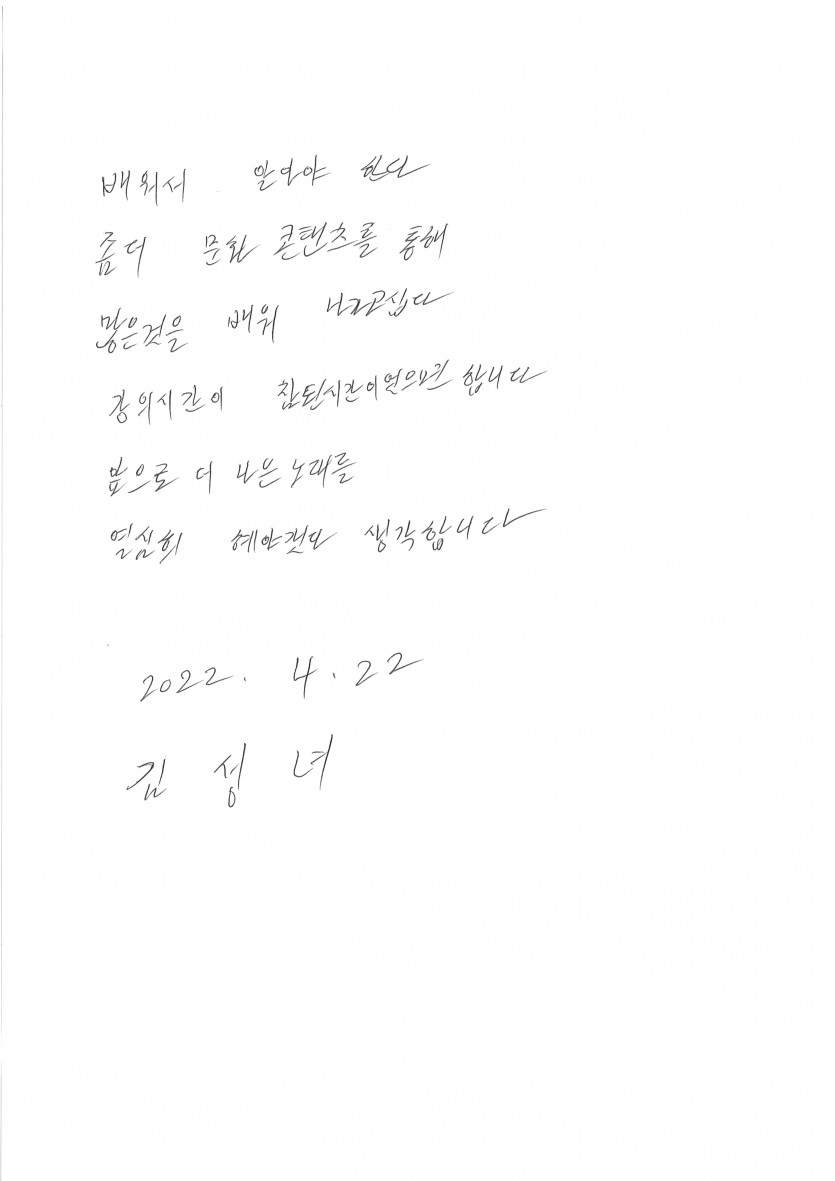 배워서 알아야 한다
좀더 문화 콘탠츠를 통해
많은것을 배워 나고십다
강의시간이 참된시간이였으면 합니다
앞으로 더 나은 노래를
열심희 헤야겟다 생각합니다
2022. 4. 22
김 성 녀